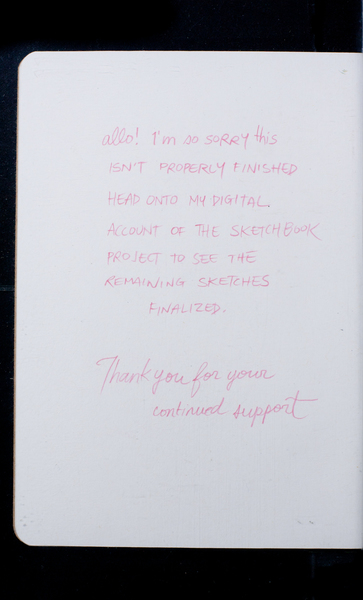 allo! I'm so SORRY this
ISN'T PROPERLY FINISHED
HEAD ONTO MY DIGITAL.
ACCOUNT OF THE SKETCHBOOK
PROJECT TO SEE THE
REMAINING SKETCHES
FINALIZED.
Thank you for your
continued support